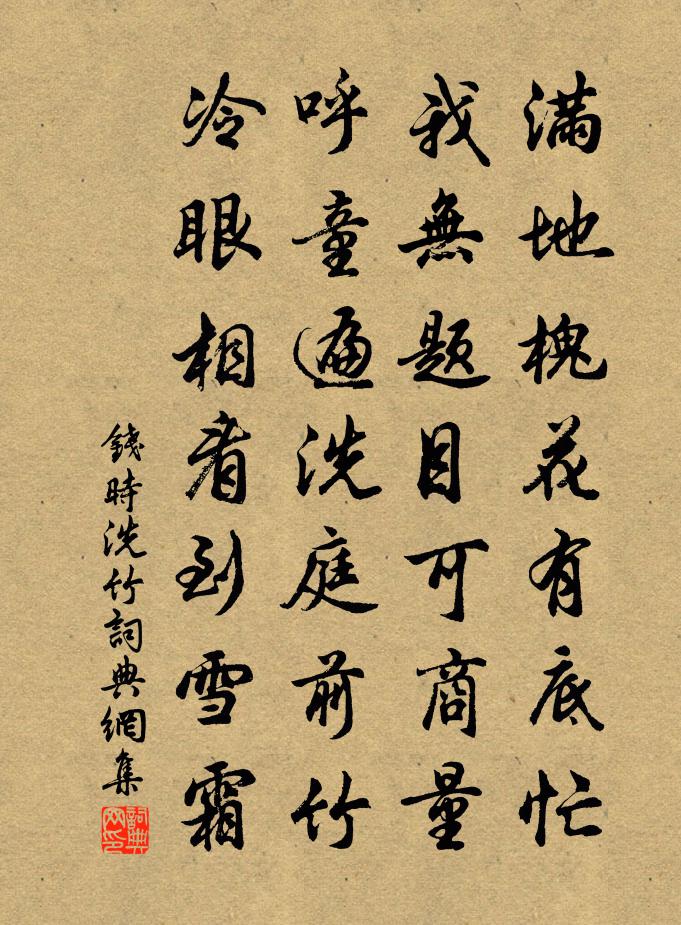 滿地槐花有底忙
我無題目可商量
呼童遍洗庭前竹
冷眼相看到雪霜
錢時洗竹詞典網集
詞典網印